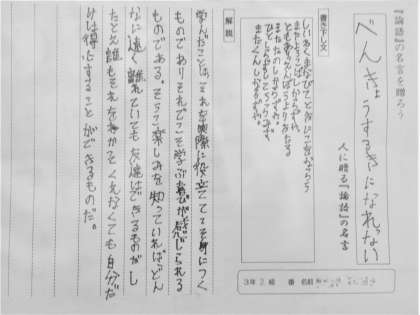 『論語』の名言を贈ろう
べんきょうするきになれない
人に贈る『論語』の名言
3年2組 番 名前
書き下し文
しいわくまなびてときにこれをならう
またよろこばしからずや。
ともありえんぽうよりきたる
またたのしからずや。
ひとしらずしてうらみず
またくんしならずや。
解説
学んだことは、それを実際に役立ててこそ身につく
ものでありそれでこそ学ぶ喜びが感じられる
ものである。そういう楽しみを知っていればどん
なに遠く離れていても友達はできるものだし
たとえ誰もそれをわかってくれなくても自分だ
けは得心することができるものだ。